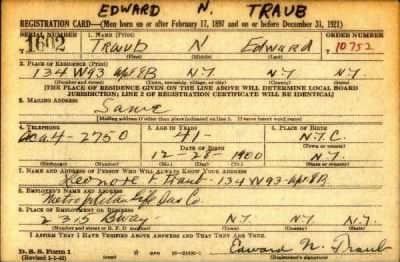 EDWARD N. TRAUB
REGISTRATION CARD—(Men born on or after February 17, 1897 and on or before December 31, 1921)
SERIAL NUMBER 1. NAME (Print) ORDER NUMBER
1602 Traub N Edward 10752
2. PLACE OF RESIDENCE (Print)
134 W 93 Apt 8B N.Y. N.Y.
(Number and street) (Town, township, village, or city) (County) (State)
[THE PLACE OF RESIDENCE GIVEN ON THE LINE ABOVE WILL DETERMINE LOCAL BOARD
JURISDICTION; LINE 2 OF REGISTRATION CERTIFICATE WILL BE IDENTICAL]
3. MAILING ADDRESS
Same
[Mailing address if other than place indicated on line 2. If same insert word same]
4. TELEPHONE 5. AGE IN YEARS 6. PLACE OF BIRTH
Aca 4-2750 41 N.Y.C.
DATE OF BIRTH (Town or county)
12-28-1900 N.Y.
(Exchange) (Number) (Mo.) (Day) (Yr.) (State or country)
7. NAME AND ADDRESS OF PERSON WHO WILL ALWAYS KNOW YOUR ADDRESS
Leonore Traub - 134 W 93 - Apt 8B
8. EMPLOYER'S NAME AND ADDRESS
Metropolitan Life Ins Co.
9. PLACE OF EMPLOYMENT OR BUSINESS
2315 Bway N.Y. N.Y.
(Number and street or R. F. D. number) (Town) (County) (State)
I AFFIRM THAT I HAVE VERIFIED ABOVE ANSWERS AND THAT THEY ARE TRUE.
D. S. S. Form 1 Edward N. Traub
(Revised 1-1-42) (over) (Registrant's signature)